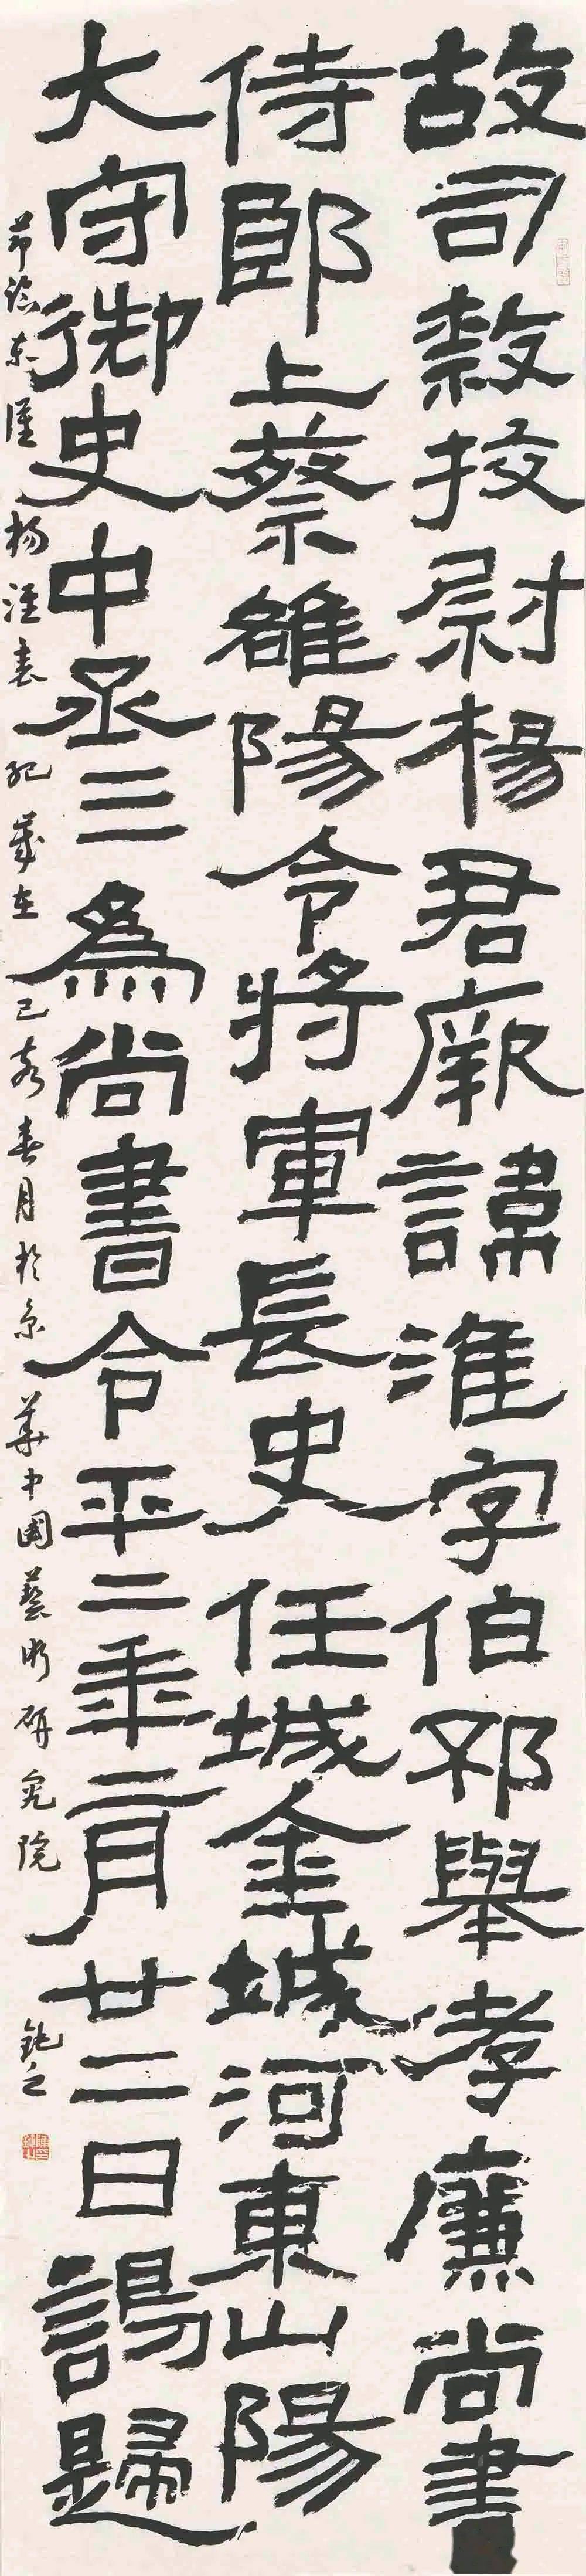 故司隸校尉楊君厥諱淮字伯邳舉孝廉尚書
侍郎上蔡雒陽令將軍長史任城金城河東山陽
大守御史中丞三為尚書令平二年二月廿二日謁歸
節臨東漢楊淮表紀歲在己亥春月於京華中國藝術研究院